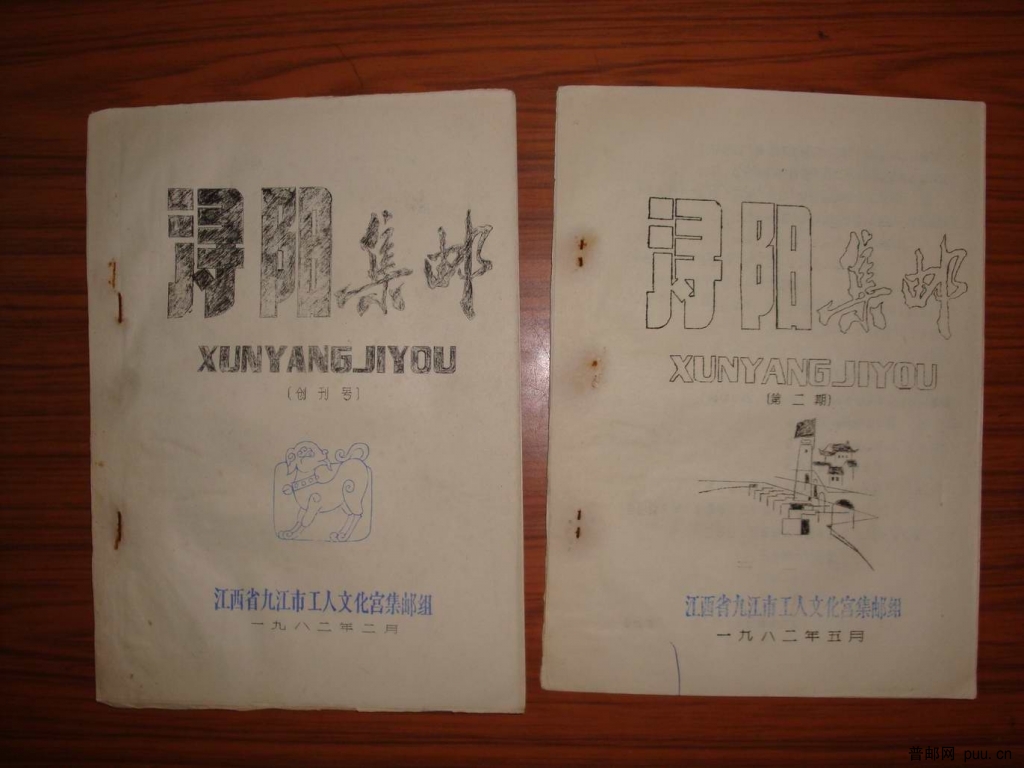 浔阳集邮
XUNYANG JIYOU
(创刊号)
江西省九江市工人文化宫集邮组
一九八二年二月
浔阳集邮
XUNYANG JIYOU
(第二期)
江西省九江市工人文化宫集邮组
一九八二年五月
普邮网 puu.cn